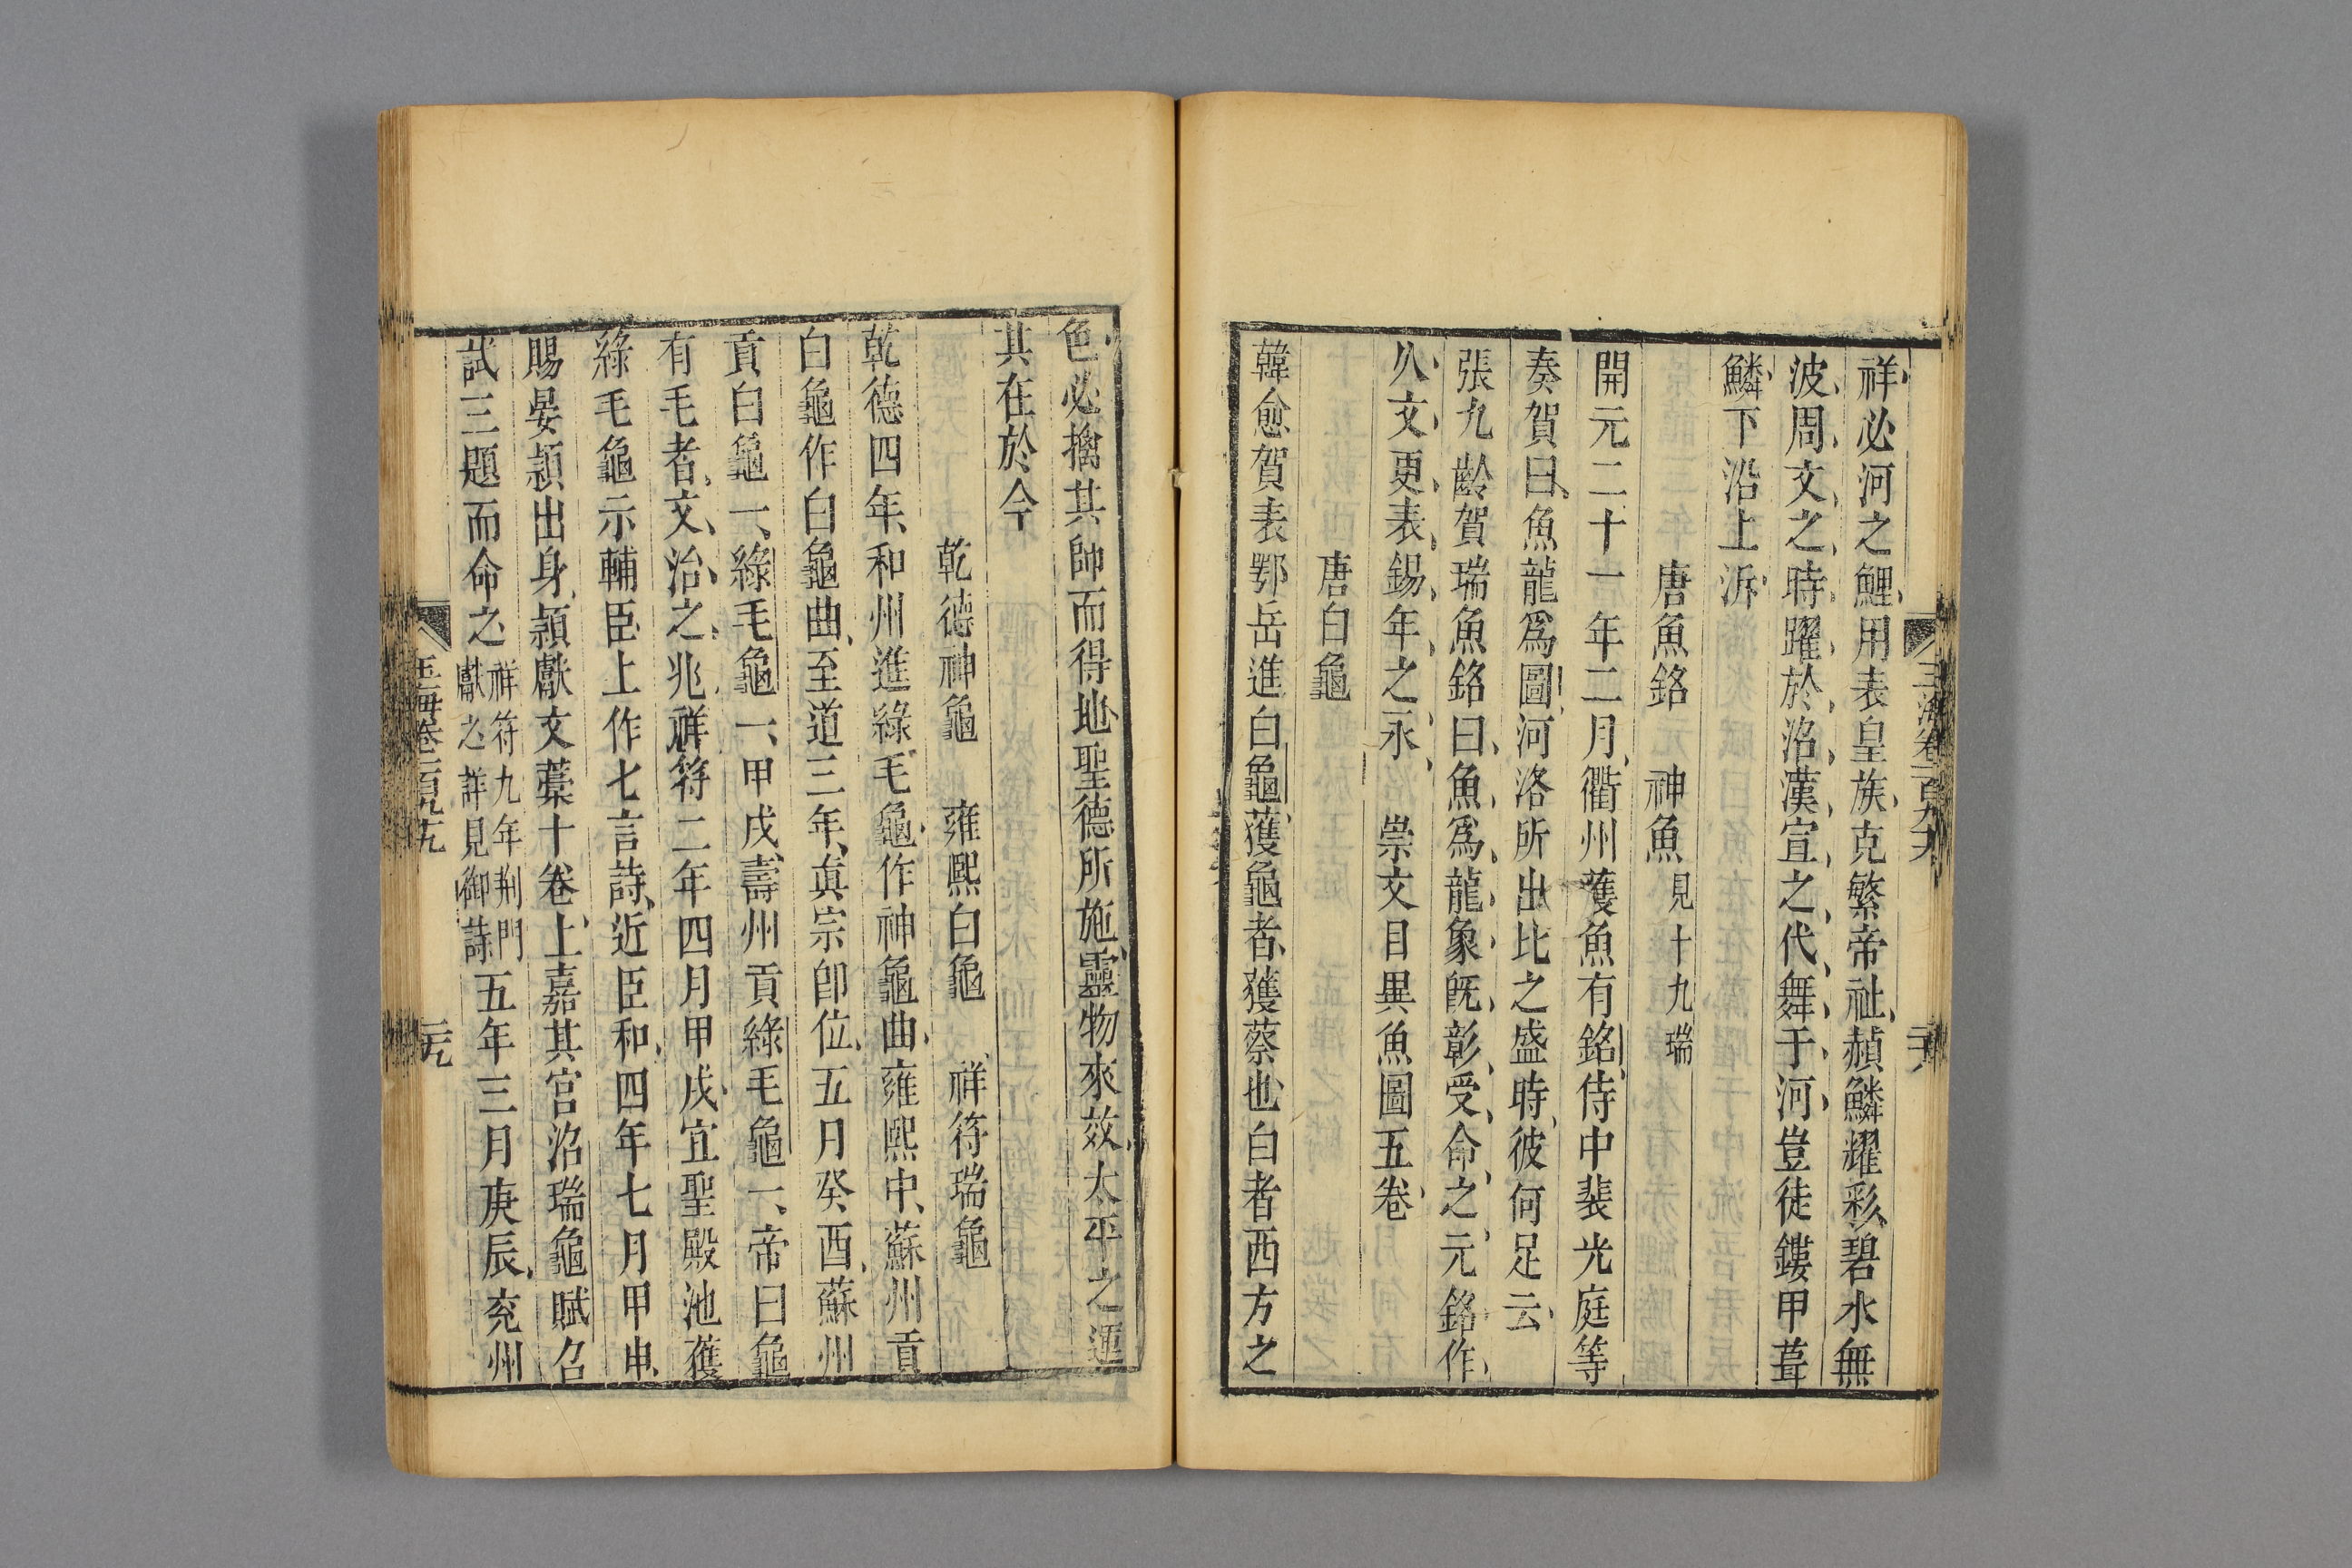 祥必河之鯉用表皇族克繁帝祉赬鱗耀彩碧水無
波周文之時躍於洛漢宣之代舞于河豈徒鏤甲葺
鱗下沿上泝
唐魚銘 神魚見十九瑞
開元二十一年二月衢州獲魚有銘侍中裴光庭等
奏賀曰魚龍爲圖河洛所出比之盛時彼何足云
張九齡賀瑞魚銘曰魚爲龍象旣彰受命之元銘作
久文更表錫年之永 崇文目異魚圖五卷
唐白龜
韓愈賀表鄂岳進白龜獲龜者獲蔡也白者西方之
玉海卷一百九十九
二十八
色必擒其帥而得地聖德所施靈物來效太平之運
其在於今
乾德神龜 雍熙白龜 祥符瑞龜
乾德四年和州進綠毛龜作神龜曲雍熙中蘇州貢
白龜作白龜曲至道三年眞宗卽位五月癸酉蘇州
貢白龜一綠毛龜一甲戌壽州貢綠毛龜一帝曰龜
有毛者文治之兆祥符二年四月甲戌宜聖殿池獲
綠毛龜示輔臣上作七言詩近臣和四年七月甲申
賜晏潁出身潁獻文藁十卷上嘉其宮沼瑞龜賦召
試三題而命之祥符九年荆門獻之詳見御詩五年三月庚辰兖州